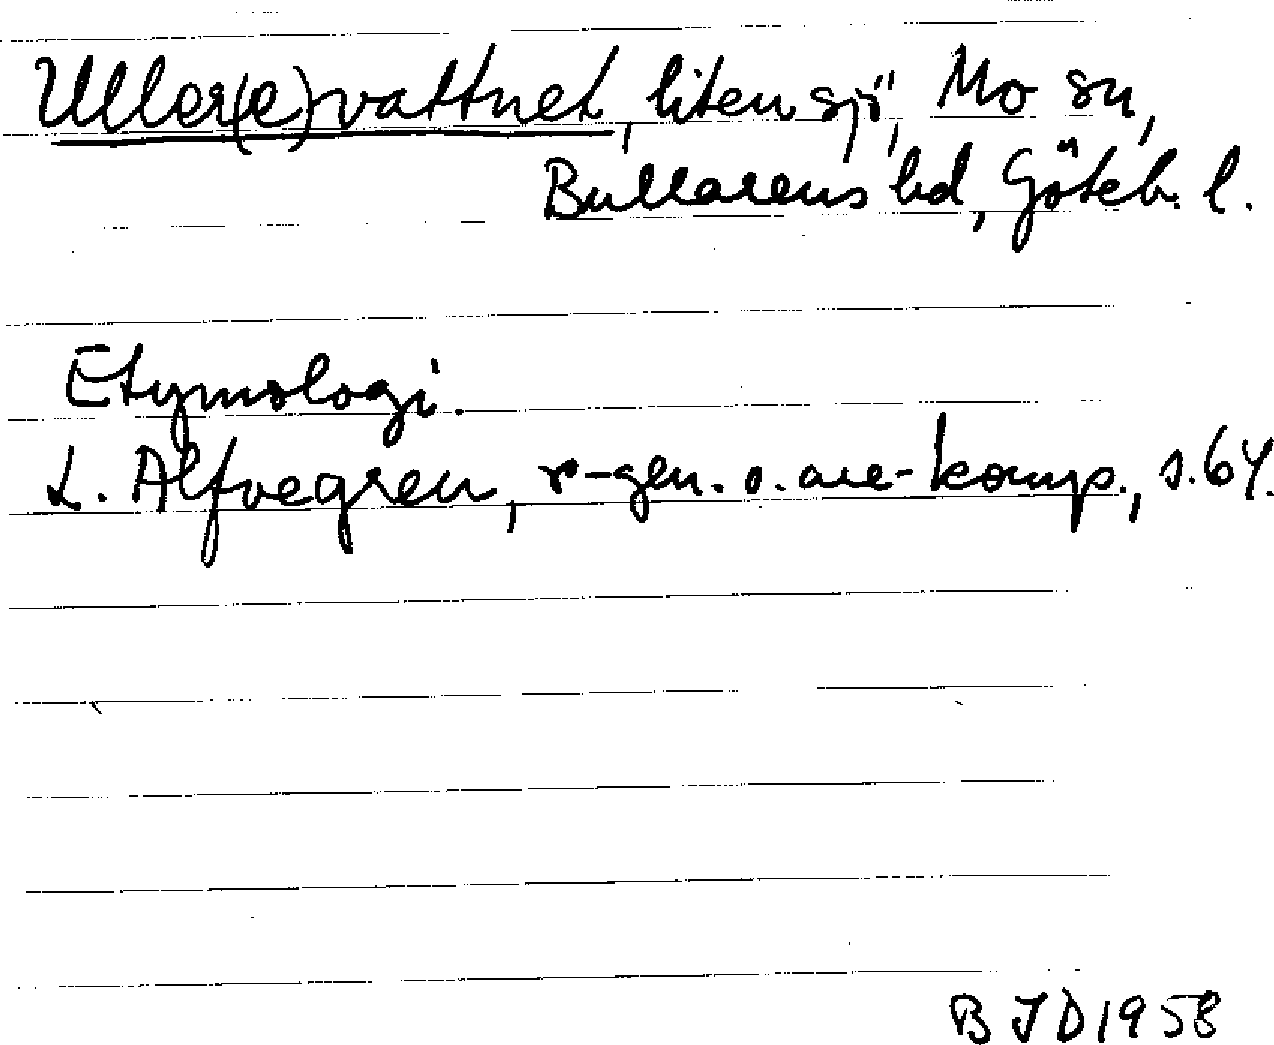 Uller(e)vattnet, liten sjö, Mo sn,
Bullarens hd, Göteb. l.
Etymologi.
L. Alfvegren, r-gen. o. are-komp., s. 64.
BJD1958